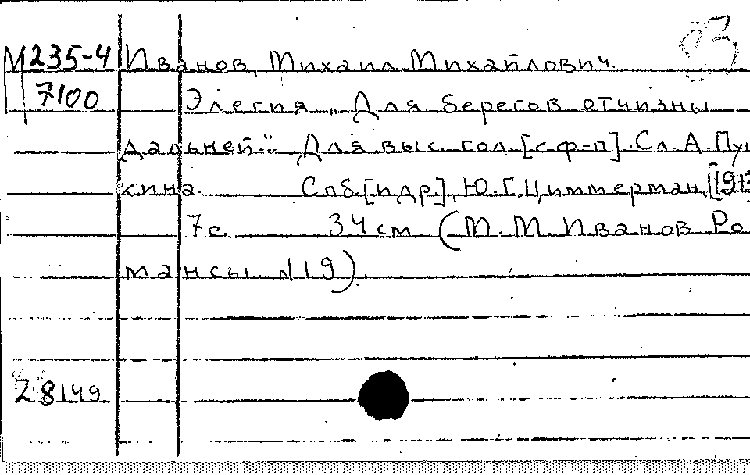 М235-4 Иванов, Михаил Михайлович.
7100 Элегия „Для берегов отчизны
дальней.” Для выс. гол. [с ф-п]. Сл. А. Пуш
кина. Спб. [и др.], Ю. Г. Циммерман, [191
7 с. 34 см (М. М. Иванов Ро
мансы N 19).
Z 8149